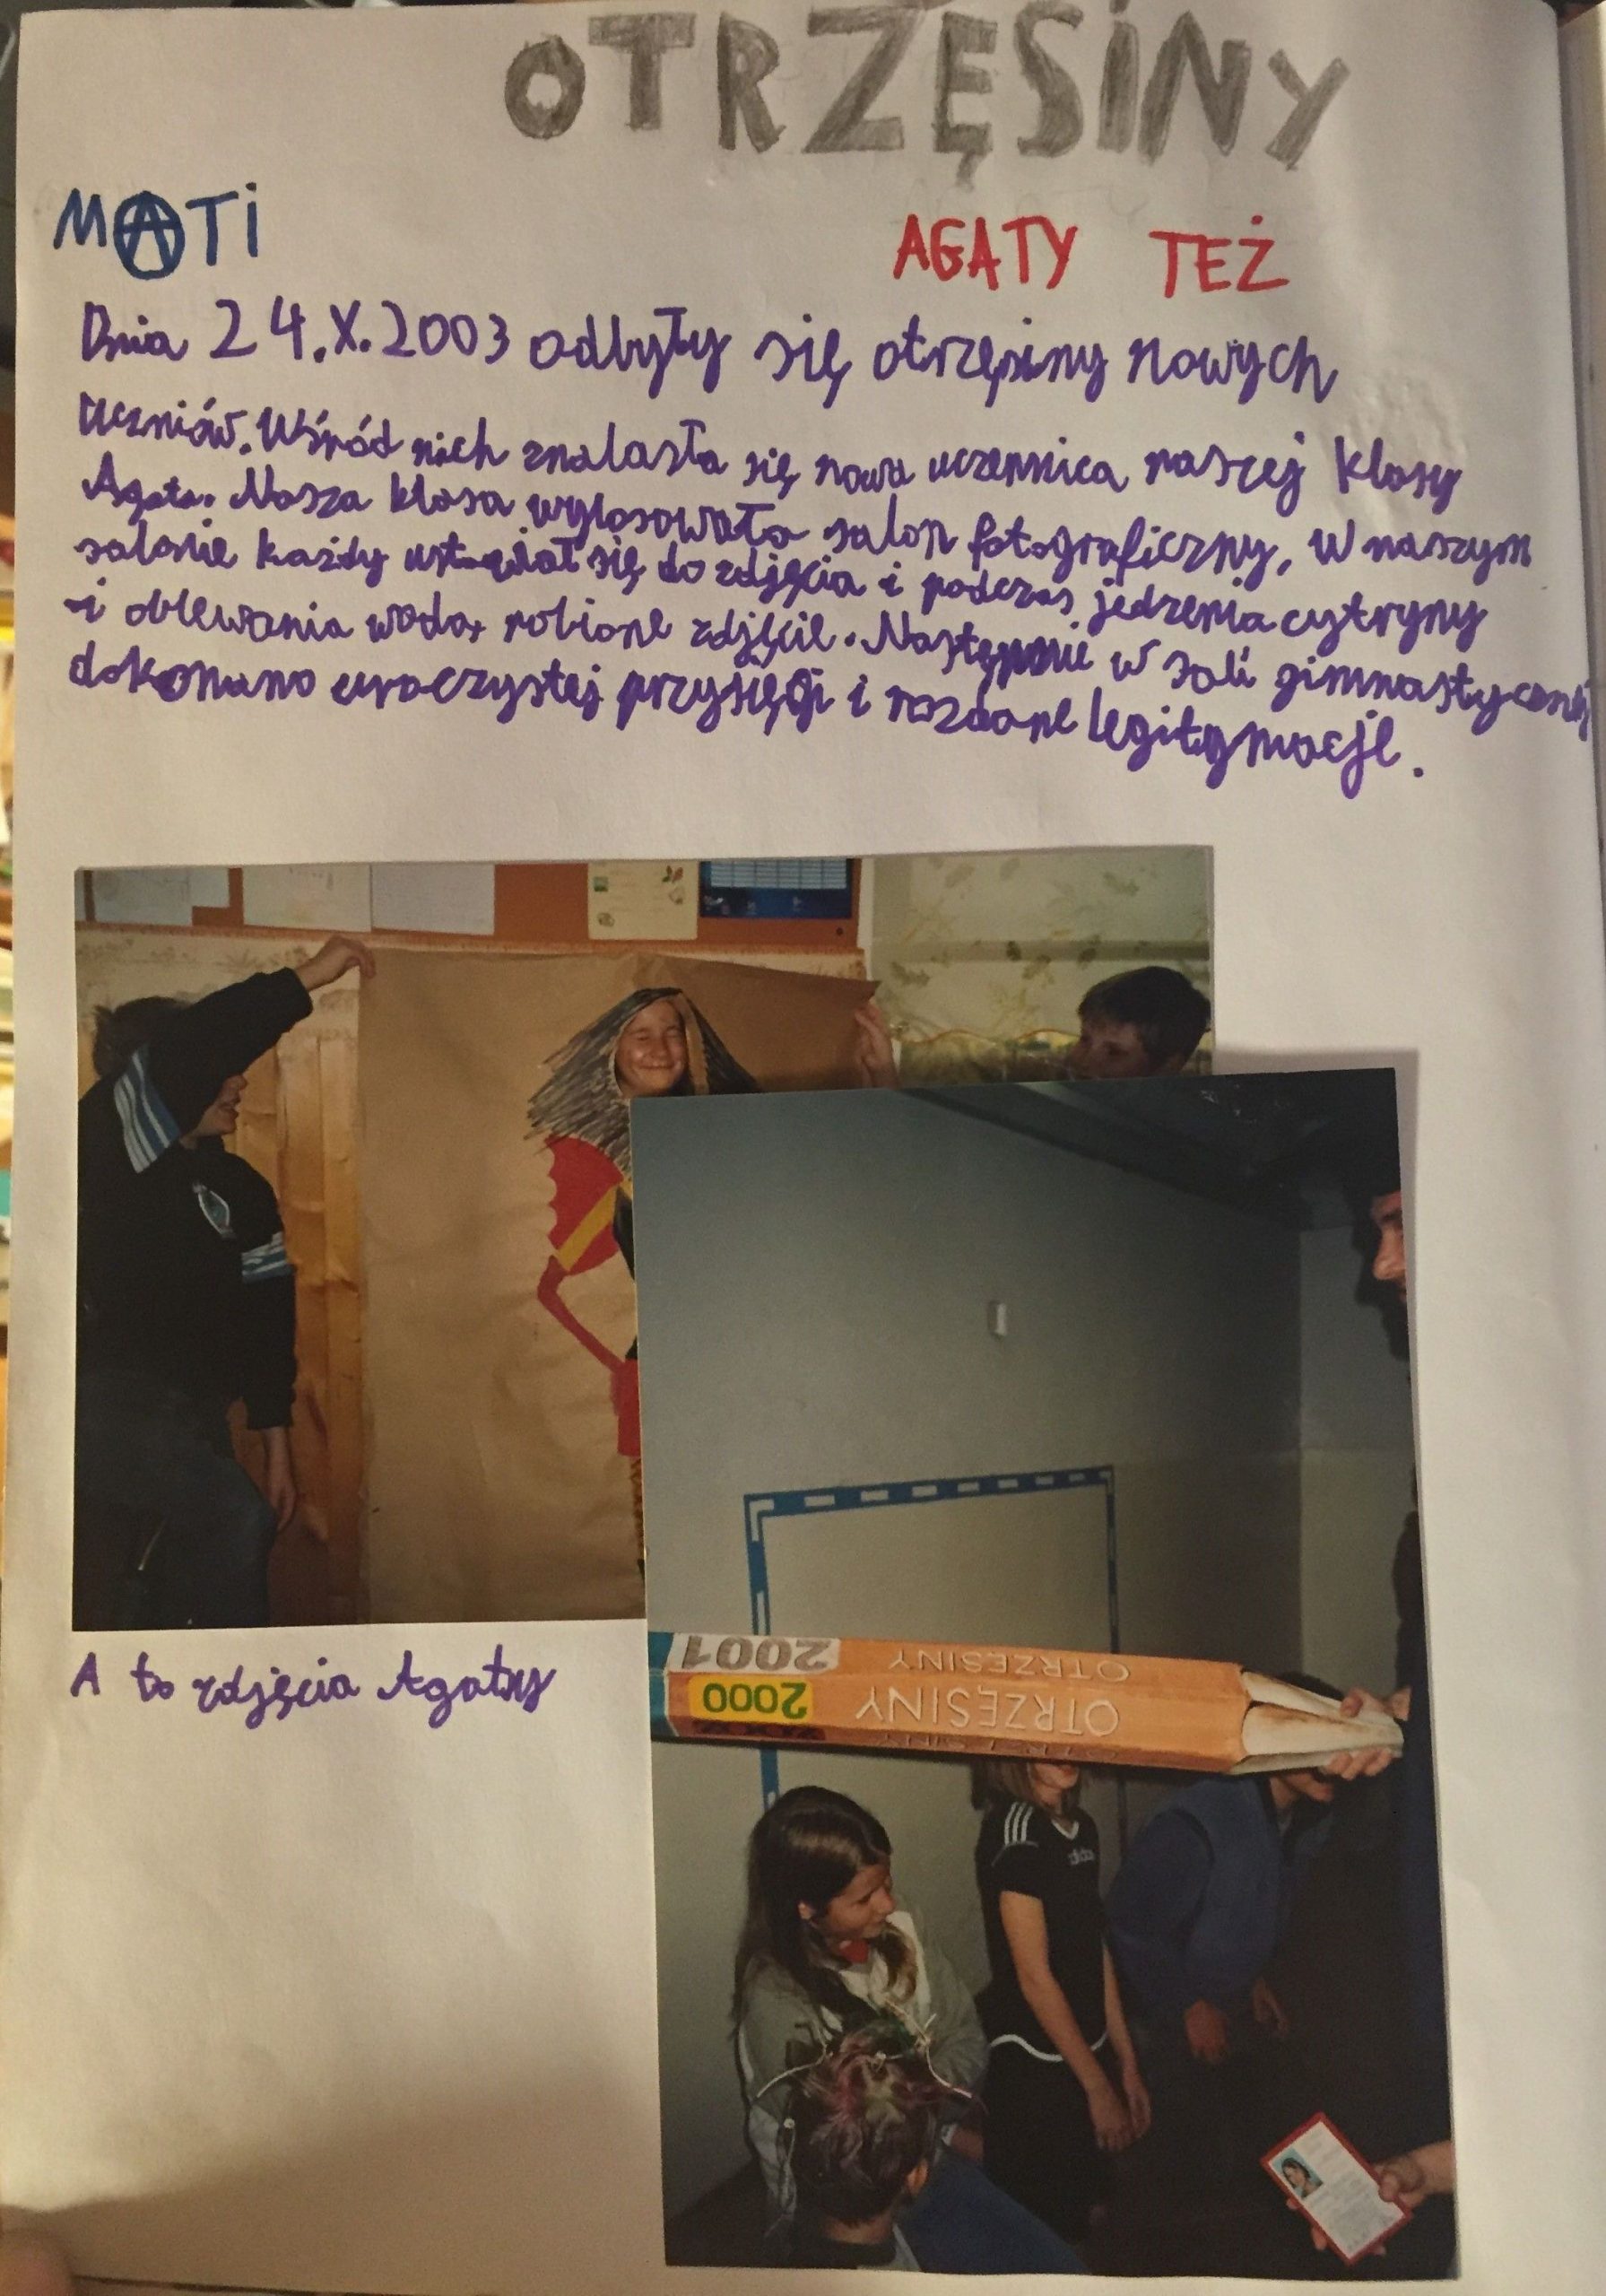 OTRZĘSINY
MATI
AGATY TEŻ
Dnia 24.X.2003 odbyły się otrzęsiny nowych
uczniów. Wśród nich znalasła się nowa uczennica naszej klasy
Agata. Nasza klasa wylosowała salon fotograficzny, w naszym
salonie każdy ustawiał się do zdjęcia i podczas jedzenia cytryny
i oblewania wodą robione zdjęcie. Następnie w sali gimnastycznej
dokonano uroczystej przysięgi i rozdane legitymacje.
2001 OTRZĘSINY
2000 OTRZĘSINY
A to zdjęcia Agaty